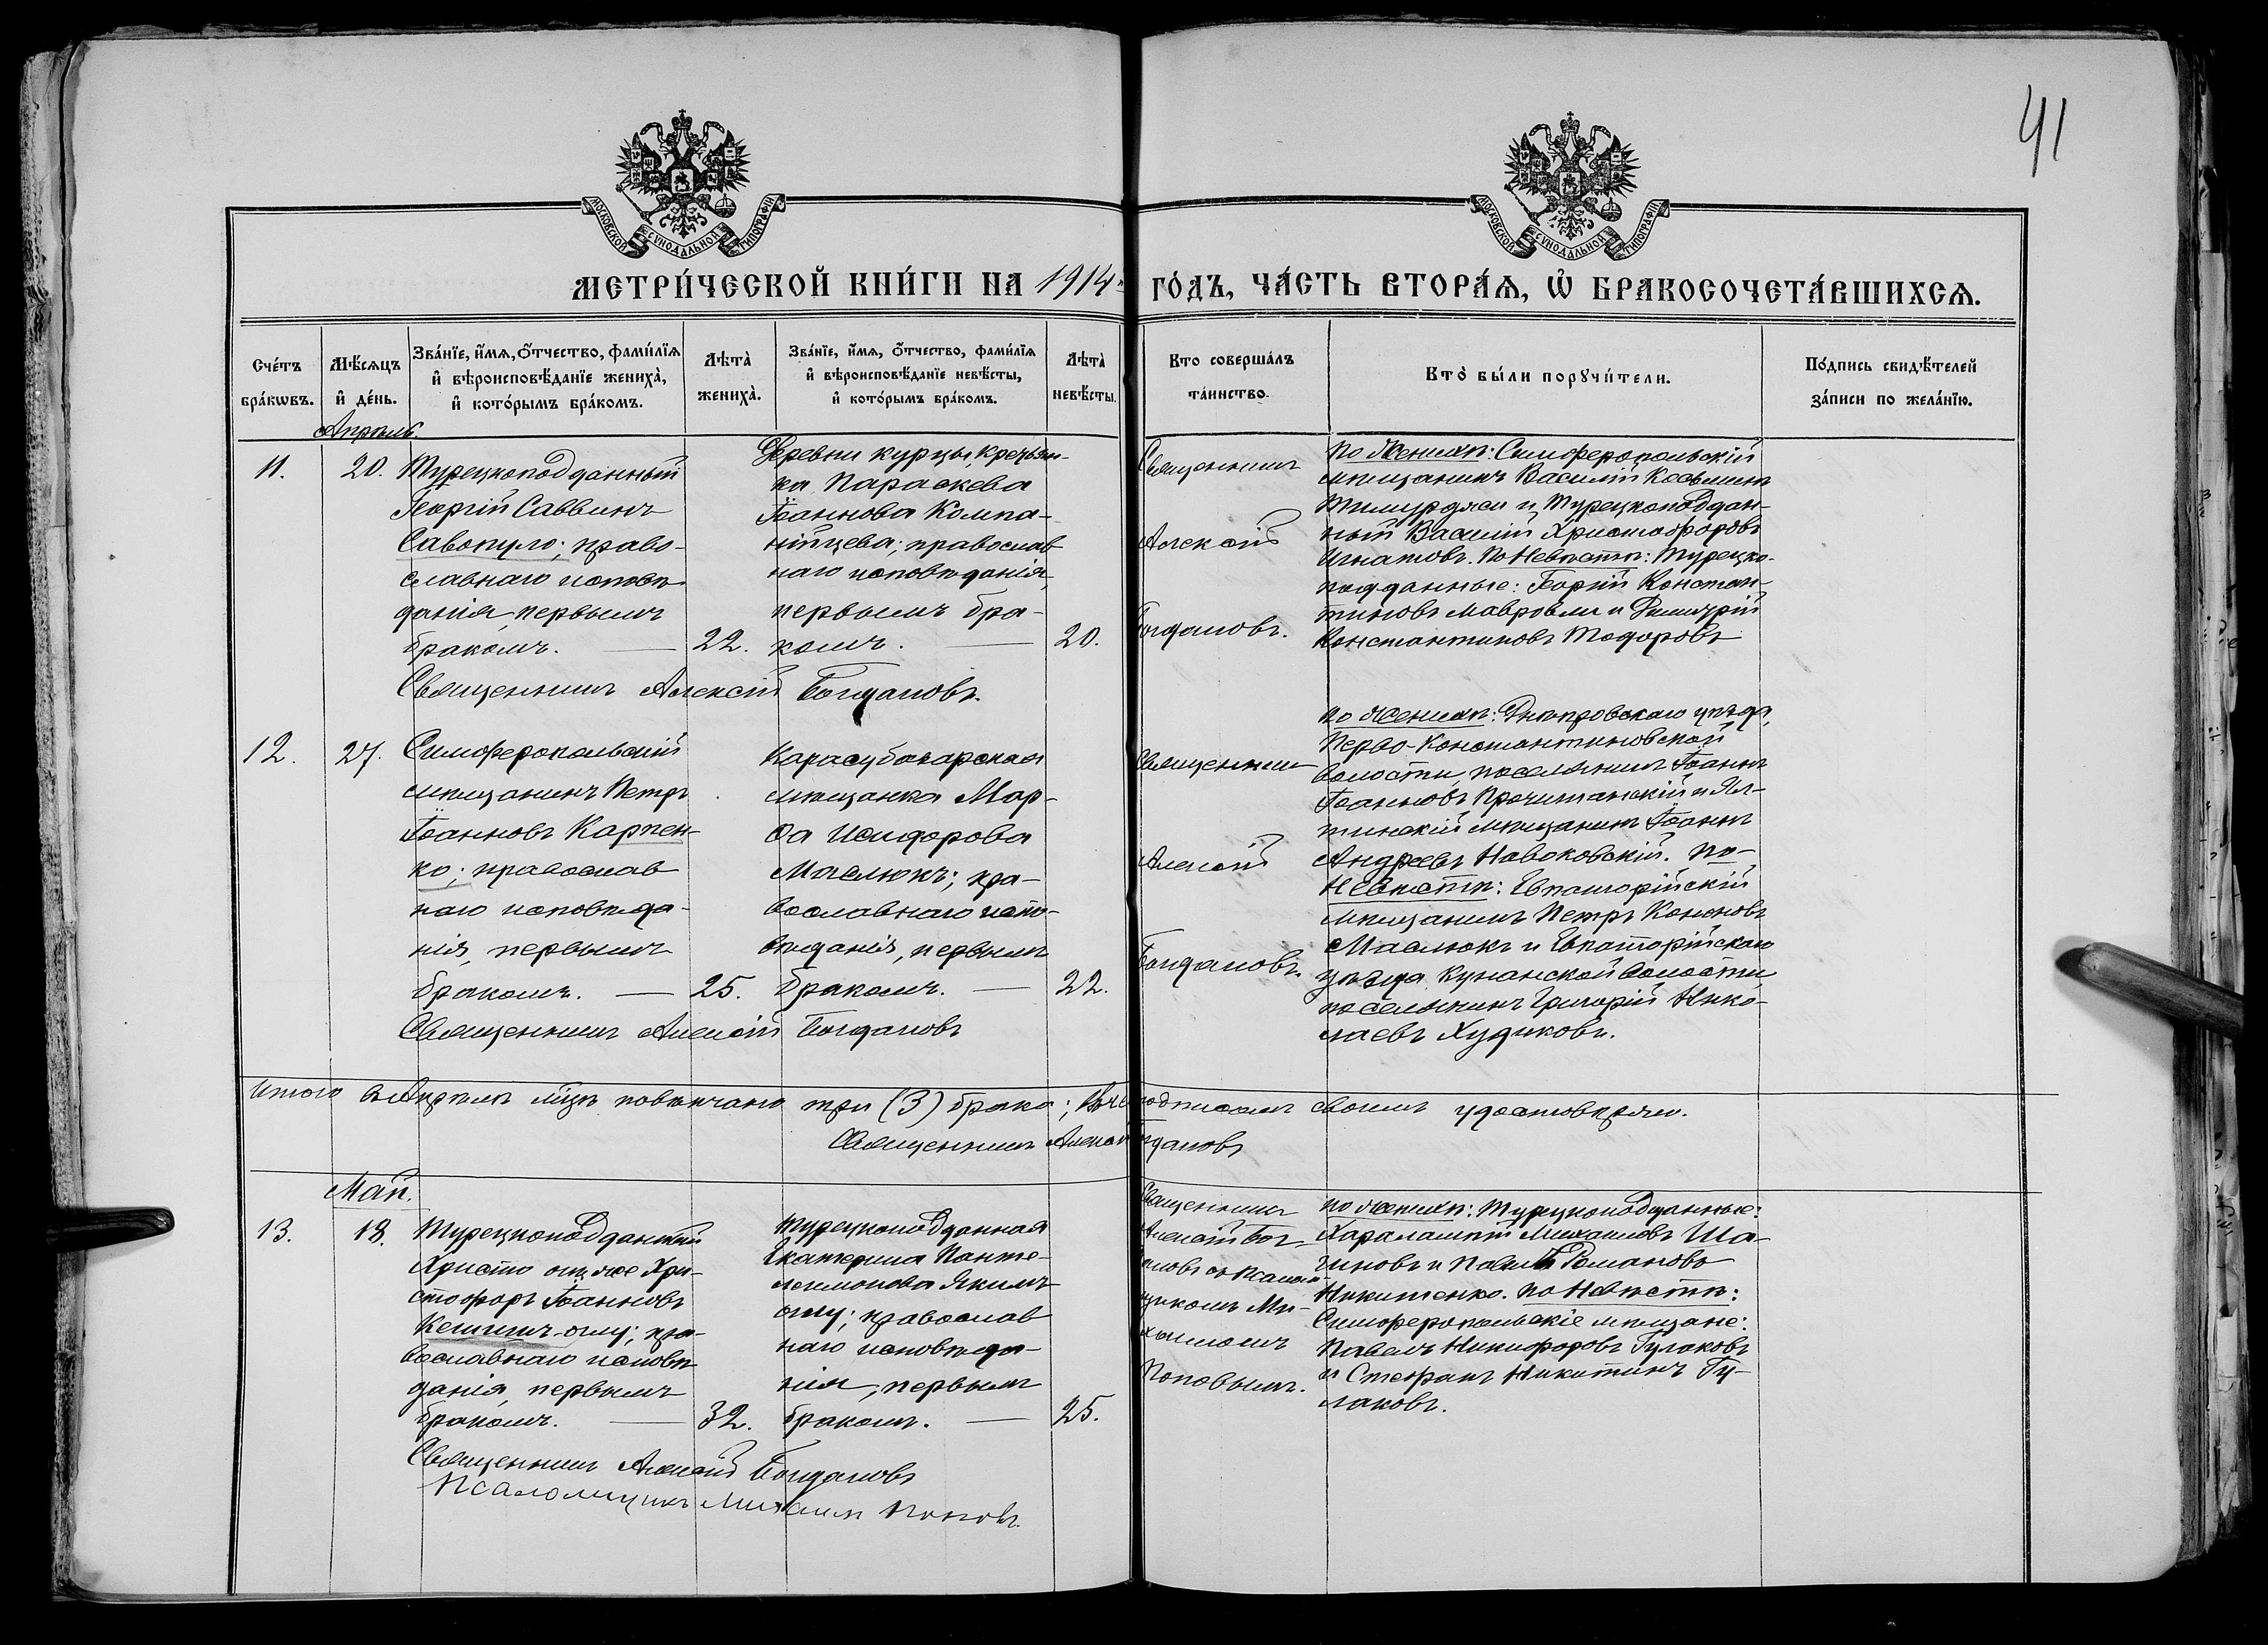 41
МОСКОВСКОЙ СѴНОДАЛЬНОЙ ТИПОГРАФІИ
МОСКОВСКОЙ СѴНОДАЛЬНОЙ ТИПОГРАФІИ
МЕТРИ́ЧЕСКОЙ КНИ́ГИ НА 1914 ГО́ДЪ, ЧА́СТЬ ВТОРА́Ѧ, Ѽ БРАКОСОЧЕТА́ВШИХСѦ.
Сче́тъ бра́кѡвъ.
Мѣ́сѧцъ и҆ де́нь.
Зва́нїе, и҆́мѧ, ѻ҆́тчество, фами́лїѧ
и҆ вѣроисповѣ́данїе жениха̀,
и҆ кото́рымъ бра́комъ.
Лѣта̀ жениха̀.
Зва́нїе, и҆́мѧ, ѻ҆́тчество, фами́лїѧ
и҆ вѣроисповѣ́данїе невѣ́сты,
и҆ кото́рымъ бра́комъ.
Лѣта̀ невѣ́сты.
Кто соверша́лъ та́инство.
Кто̀ бы́ли порꙋчи́тели.
По́дпись свидѣ́телей за́писи по жела́нїю.
Апрѣль.
11.
20.
Турецкоподданный
Георгій Саввинъ
Савопуло; право-
славнаго исповѣ-
данія, первымъ
бракомъ. — 22.
Деревни Курцы, крестьян-
ка Параскева
Іоаннова Компа-
нійцева; православ
наго исповѣданія,
первымъ бра-
комъ. — 20.
Священникъ
Алексій
Богдановъ.
По Женихѣ: Симферопольскій
мѣщанинъ Василій Косьминъ
Тимурджи и Турецкоподдан-
ный Василій Христофоровъ
Игнатовъ. По Невѣстѣ: Турецко-
подданные: Георгій Констан-
тиновъ Мавровли и Димитрій
Константиновъ Тодоровъ
Священникъ Алексій Богдановъ.
12.
27.
Симферопольскій
мѣщанинъ Петръ
Іоанновъ Карпен-
ко; православ
наго исповѣда-
нія, первымъ
бракомъ. — 25.
Карасубазарская
мѣщанка Мар-
ѳа Исидорова
Маслюкъ; пра-
вославнаго испо-
вѣданія, первымъ
бракомъ. — 22.
Священник
Алексій
Богдановъ.
По Женихѣ: Днѣпровскаго уѣзда,
Перво-Константиновской
волости, поселянинъ Іоаннъ
Іоанновъ Прочитанскій и Ял-
тинскій мѣщанинъ Іоаннъ
Андреевъ Новаковскій. По-
Невѣстѣ: Евпаторійскій
мѣщанинъ Петръ Кононовъ
Маслюкъ и Евпаторійскаго
уѣзда Кунанской волости
поселянинъ Григорій Нико-
лаевъ Худиковъ.
Священникъ Алексій Богдановъ
Итого въ Апрѣлѣ м-цѣ повѣнчано три (3) брака; подписомъ своимъ удостовѣряю.
Священникъ Алексій Богдановъ
Май.
13.
18.
Турецкоподданный
Христо онъ же Хри-
стофоръ Іоанновъ
Кешишъ-оглу; пра-
вославнаго исповѣ
данія, первымъ
бракомъ. — 32.
Турецкоподданная
Екатерина Панте-
леимонова Якимъ-
оглу; православ
наго исповѣда-
нія, первымъ
бракомъ. — 25.
Священникъ
Алексій Бог-
дановъ съ Псалом-
щикомъ Ми-
хаиломъ
Поповымъ.
По Женихѣ: Турецкоподданные:
Харалампій Михаиловъ Ша-
гиновъ и Павелъ Романовъ
Никитенко. По Невѣстѣ:
Симферопольскіе мѣщане:
Павелъ Никифоровъ Гулаковъ
и Стефанъ Никитинъ Гу-
лаковъ.
Священникъ Алексій Богдановъ
Псаломщикъ Михаилъ Поповъ.